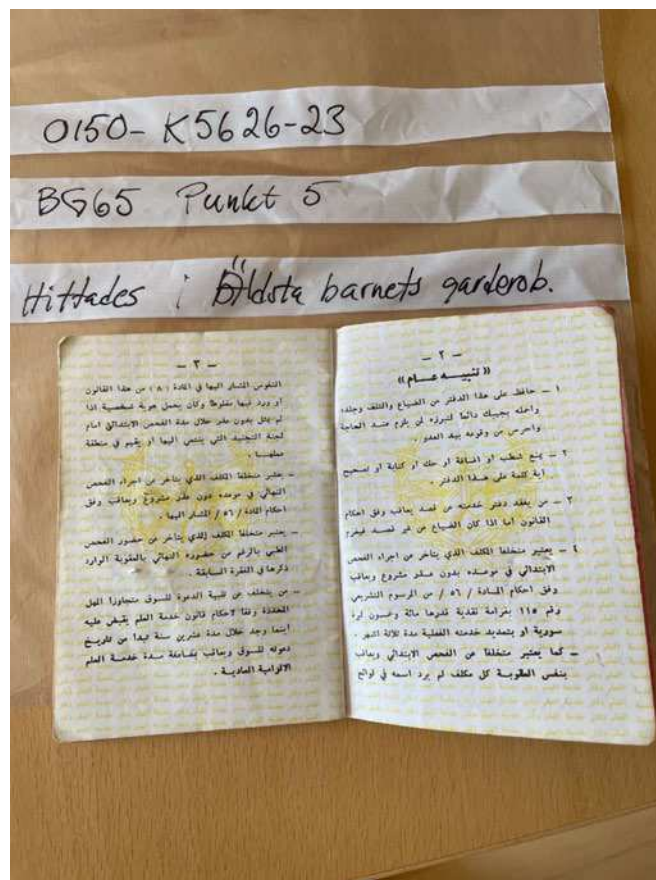 0150-K5626-23
BG65 Punkt 5
Hittades i Äldsta barnets garderob.
— ٢ —
« تنبيـــه عـــام »
١ ــ حافظ على هذا الدفتر من الضياع والتلف وجلده
واجعله بجيبك دائما لتبرزه لمن يلزم عنـد الحاجة
واحرس من وقوعه بيد العدو .
٢ ــ يمنع شطب او اضافة او حك او كتابة او تصحيح
اية كلمة على هـذا الدفتر .
٣ ــ من يفقد دفتر خدمته عن قصد يعاقب وفق احكام
القانون اما اذا كان الضياع من غير قصـد فيغرم
٤ ــ يعتبر متخلفا المكلف الذي يتاخر عن اجراء الفحص
الابتدائي في موعـده بدون عـذر مشروع ويعاقب
وفق احكام المـادة / ٥٦ / من المرسوم التشريعي
رقم ١١٥ بغرامة نقدية قدرها مائة وخمسون ليرة
سورية او بتمديد خدمته الفعلية مدة ثلاثة اشهر .
ــ كما يعتبر متخلفا عن الفحص الابتدائي ويعاقب
بنفس العقوبـة كل مكلف لم يرد اسمه في لوائح
— ٣ —
النفوس المشار اليها في المادة ( ٨ ) من هذا القانون
او ورد فيها مغلوطا وكان يحمل هوية شخصية اذا
لم يمثل بدون عذر خلال مدة الفحص الابتدائي امام
لجنة التجنيد التي ينتمي اليها او يقيم في منطقة
عملهـا .
ــ يعتبر متخلفا المكلف الذي يتاخر عن اجراء الفحص
النهائي في موعده دون عـذر مشروع ويعاقب وفق
احكام المادة / ٥٦ / المشار اليها .
ــ يعتبر متخلفا المكلف الذي يتاخر عن حضور الفحص
الطبي بالرغم من حضوره النهائي بالعقوبة الوارد
ذكرها في الفقرة السابقة .
ــ من يتخلف عن تلبية الدعوة للسـوق متجاوزا المهل
المحددة وفقا لاحكام قانون خدمة العلم يقبض عليه
اينما وجد خلال مدة عشرين سنة تبدا من تاريـخ
دعوته للسـوق ويعاقب بضاملة مـدة خدمـة العلم
الالزامية العاديـة .